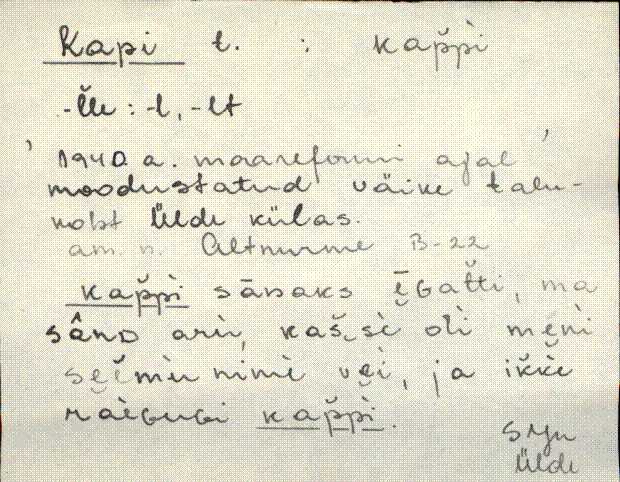 Kapi t. : kap̆pì
-lle : -l, -lt
' 1940 a. maareformi ajal '
moodustatud väike talu-
koht Ülde külas.
am. n. Altnurme B-22
kap̆pì sānaks ēGat̆ti, ma
sând ari, kaš̬sè oli mèni
nimì vei, ja ik̆kè
räèGuGi kap̆pì.
SMn
Ülde